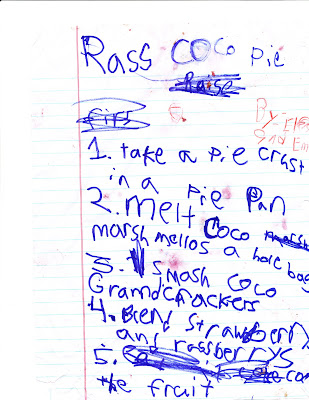 Rass COCO Pie
Raise
firs
By
and Em
1. take a pie crust
in a pie Pan
2. melt Coco
marsh mellos a hole bag
3. smash coco
Gramd crackers
4. Blend strawberry
and rassberrys
5.
the fruit